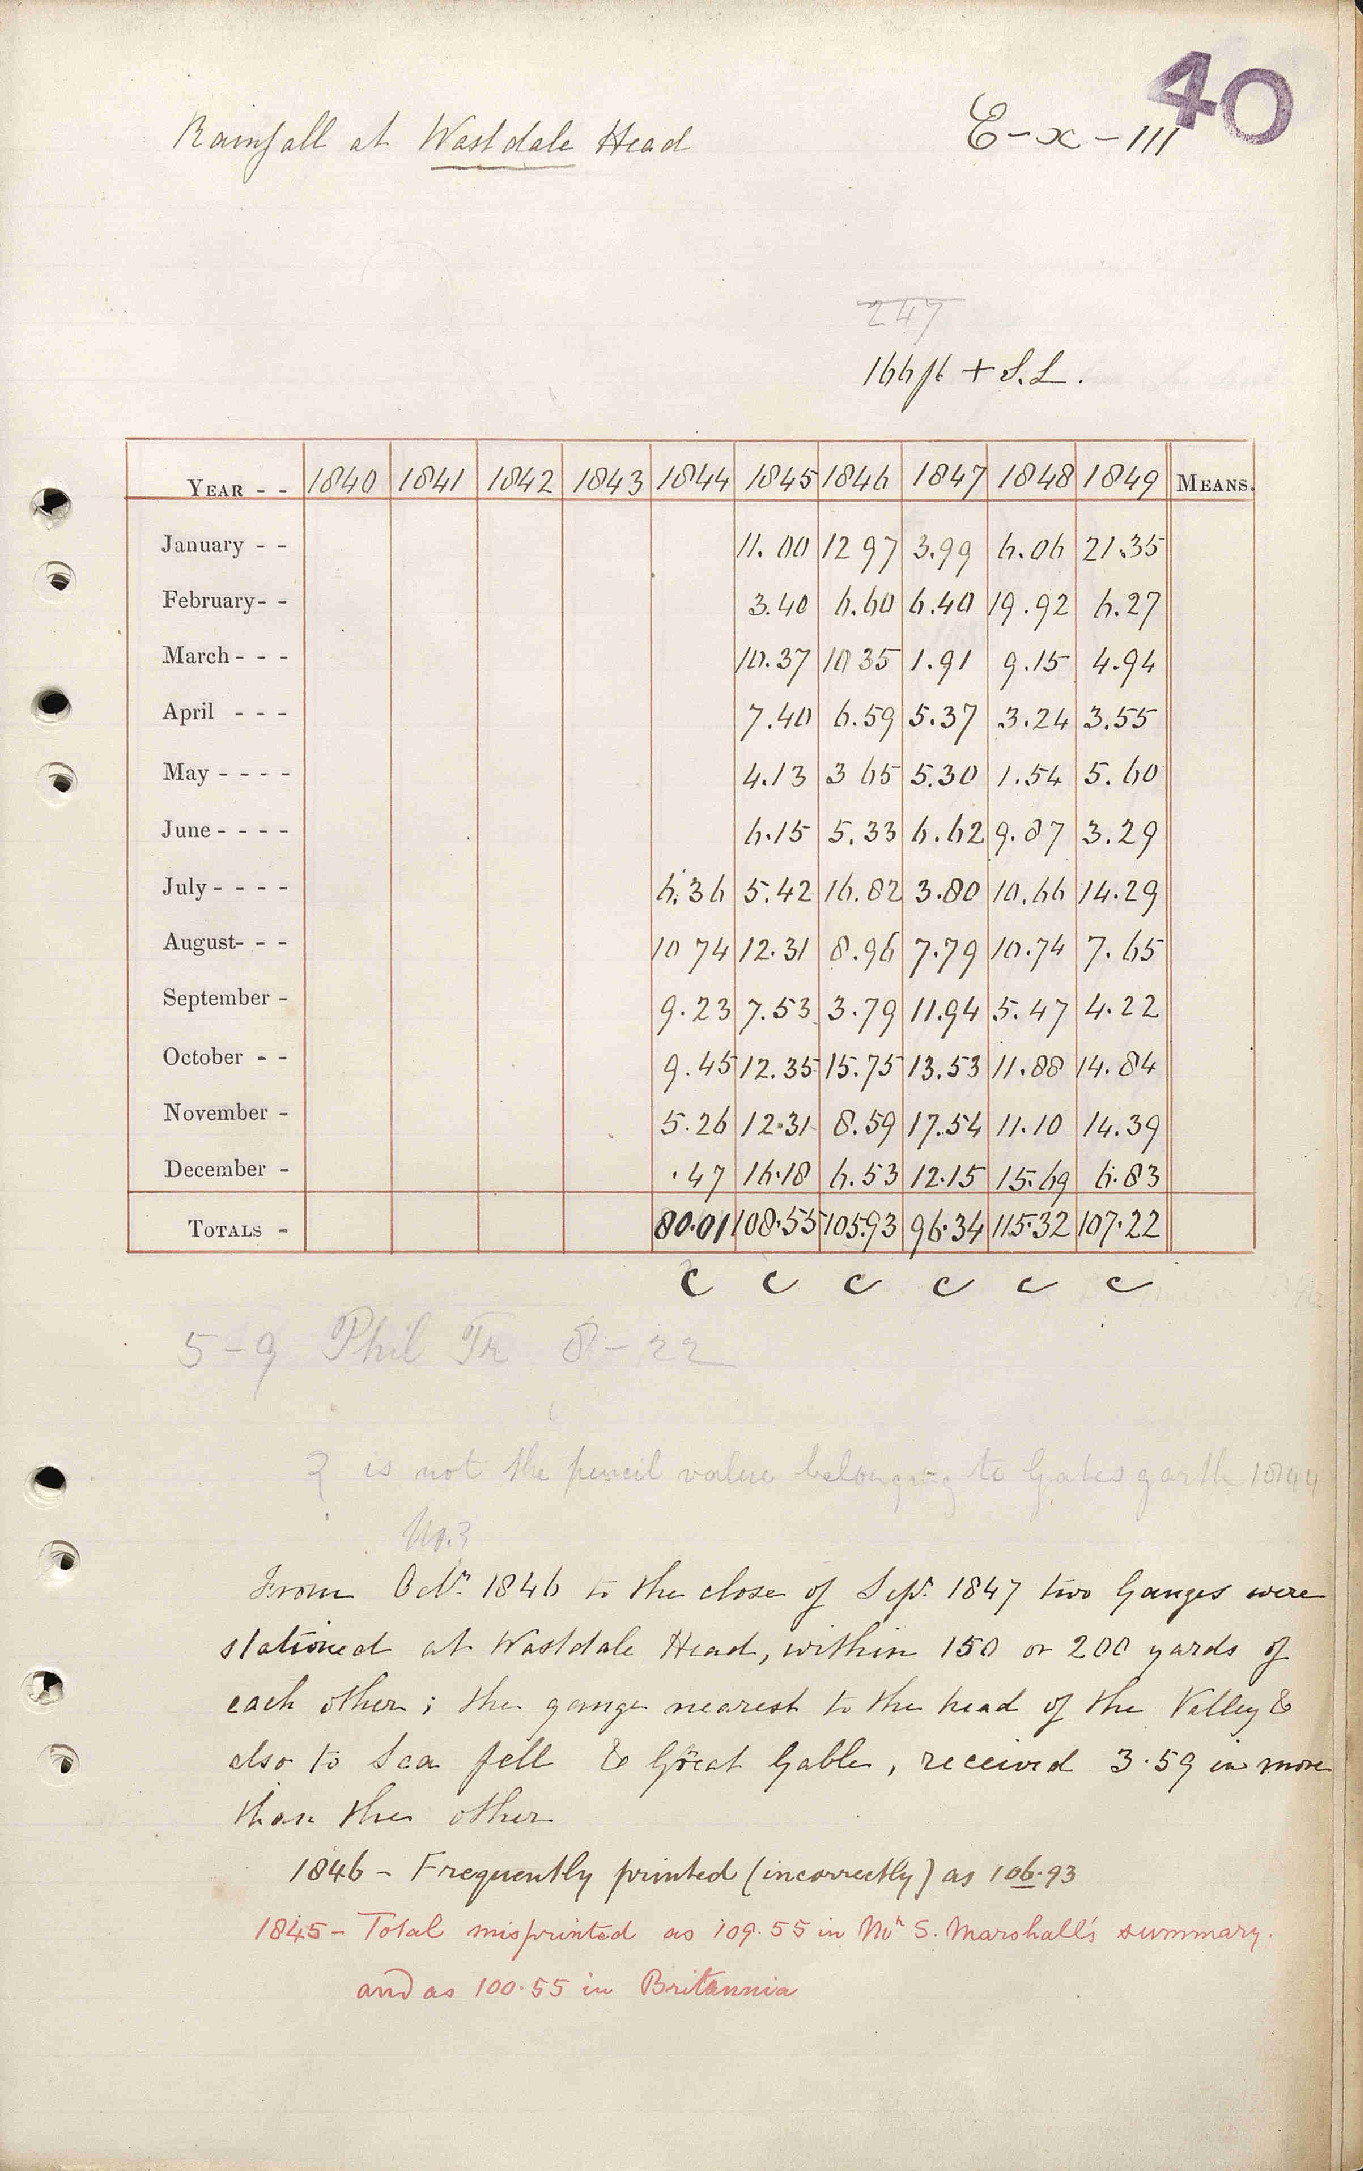 40
Rainfall at Wastdale Head
E-x-111
247
166 ft + S.L.
YEAR - - 1840 1841 1842 1843 1844 1845 1846 1847 1848 1849 MEANS.
January - - 11.00 12 97 3.99 6.06 21.35
February- - 3.40 6.60 6.40 19.92 6.27
March- - - 10.37 10 35 1.91 9.15 4.94
April - - - 7.40 6.59 5.37 3.24 3.55
May - - - - 4.13 3 65 5.30 1.54 5.60
June - - - - 6.15 5.33 6.62 9.87 3.29
July - - - - 6.36 5.42 16.82 3.80 10.66 14.29
August- - - 10 74 12.31 8.96 7.79 10.74 7.65
September - 9.23 7.53 3.79 11.94 5.47 4.22
October - - 9.45 12.35 15.75 13.53 11.88 14.84
November - 5.26 12.31 8.59 17.54 11.10 14.39
December - .47 16.18 6.53 12.15 15.69 6.83
TOTALS - 80.01 108.55 105.93 96.34 115.32 107.22
c c c c c c
5-9 Phil Tr 8-22
? is not the pencil value belonging to Gatesgarth 1844
No.3
From Octr. 1846 to the close of Sept. 1847 two Gauges were
stationed at Wastdale Head, within 150 or 200 yards of
each other; the gauge nearest to the head of the Valley &
also to Sca fell & Great Gable, received 3.59 in more
than the other
1846 - Frequently printed (incorrectly) as 106.93
1845 - Total misprinted as 109.55 in Mr S. Marshall's summary.
and as 100.55 in Britannia